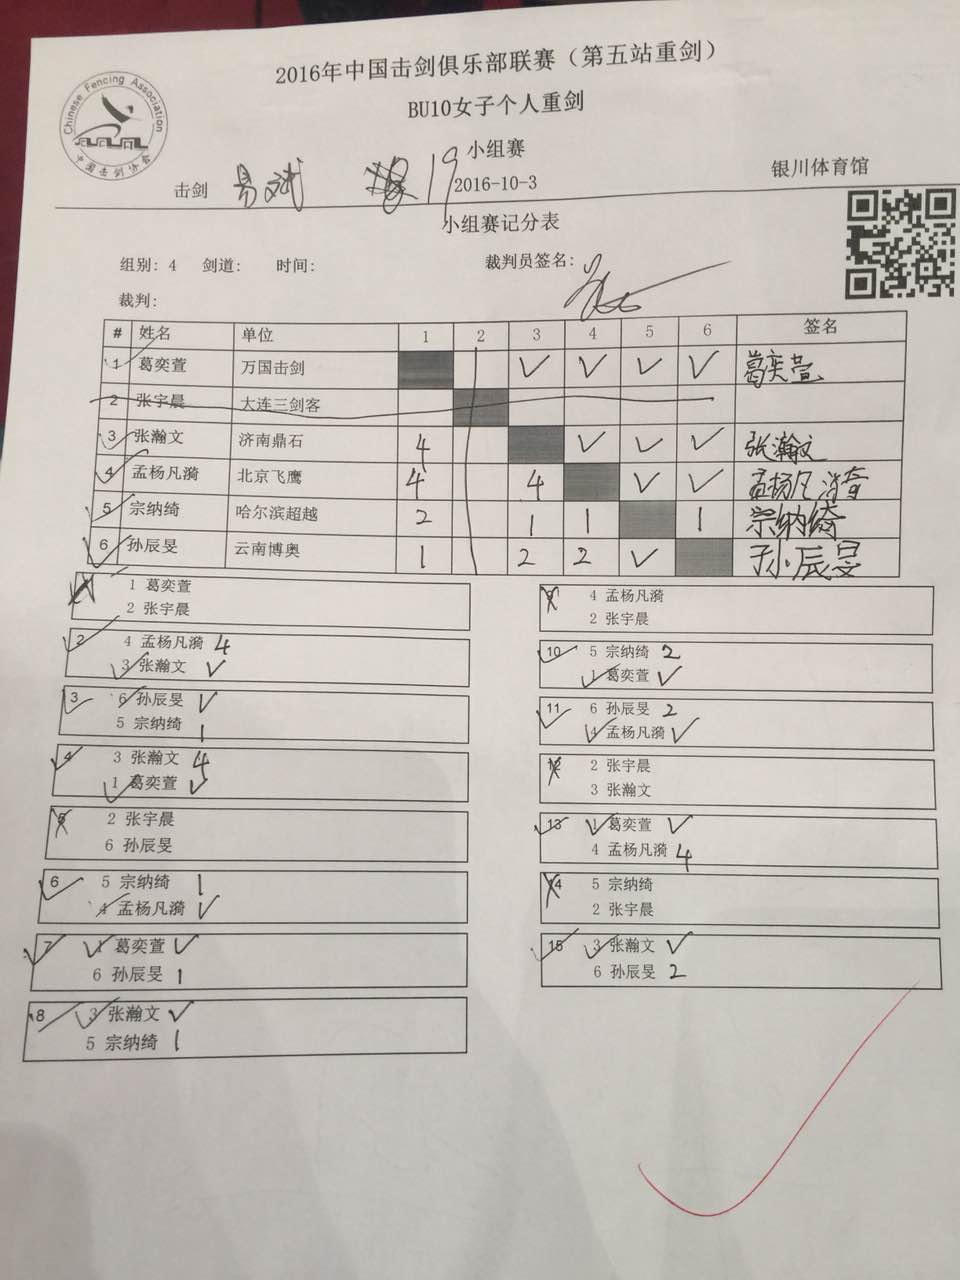 2016年中国击剑俱乐部联赛（第五站重剑）
BU10女子个人重剑
Chinese Fencing Association
中国击剑协会
小组赛
银川体育馆
击剑 易斌 19 2016-10-3
小组赛记分表
组别: 4 剑道: 时间: 裁判员签名:
裁判:
# 姓名 单位 1 2 3 4 5 6 签名
1 葛奕萱 万国击剑 ✓ ✓ ✓ ✓ 葛奕萱
2 张宇晨 大连三剑客
3 张瀚文 济南鼎石 4 ✓ ✓ ✓ 张瀚文
4 孟杨凡漪 北京飞鹰 4 4 ✓ ✓ 孟杨凡漪
5 宗纳绮 哈尔滨超越 2 1 1 1 宗纳绮
6 孙辰旻 云南博奥 1 2 2 ✓ 孙辰旻
1 1 葛奕萱
2 张宇晨
2 4 孟杨凡漪 4
3 张瀚文 ✓
3 6 孙辰旻 ✓
5 宗纳绮 1
4 3 张瀚文 4
1 葛奕萱 ✓
5 2 张宇晨
6 孙辰旻
6 5 宗纳绮 1
4 孟杨凡漪 ✓
7 1 葛奕萱 ✓
6 孙辰旻 1
8 3 张瀚文 ✓
5 宗纳绮 1
9 4 孟杨凡漪
2 张宇晨
10 5 宗纳绮 2
1 葛奕萱 ✓
11 6 孙辰旻 2
4 孟杨凡漪 ✓
12 2 张宇晨
3 张瀚文
13 1 葛奕萱 ✓
4 孟杨凡漪 4
14 5 宗纳绮
2 张宇晨
15 3 张瀚文 ✓
6 孙辰旻 2